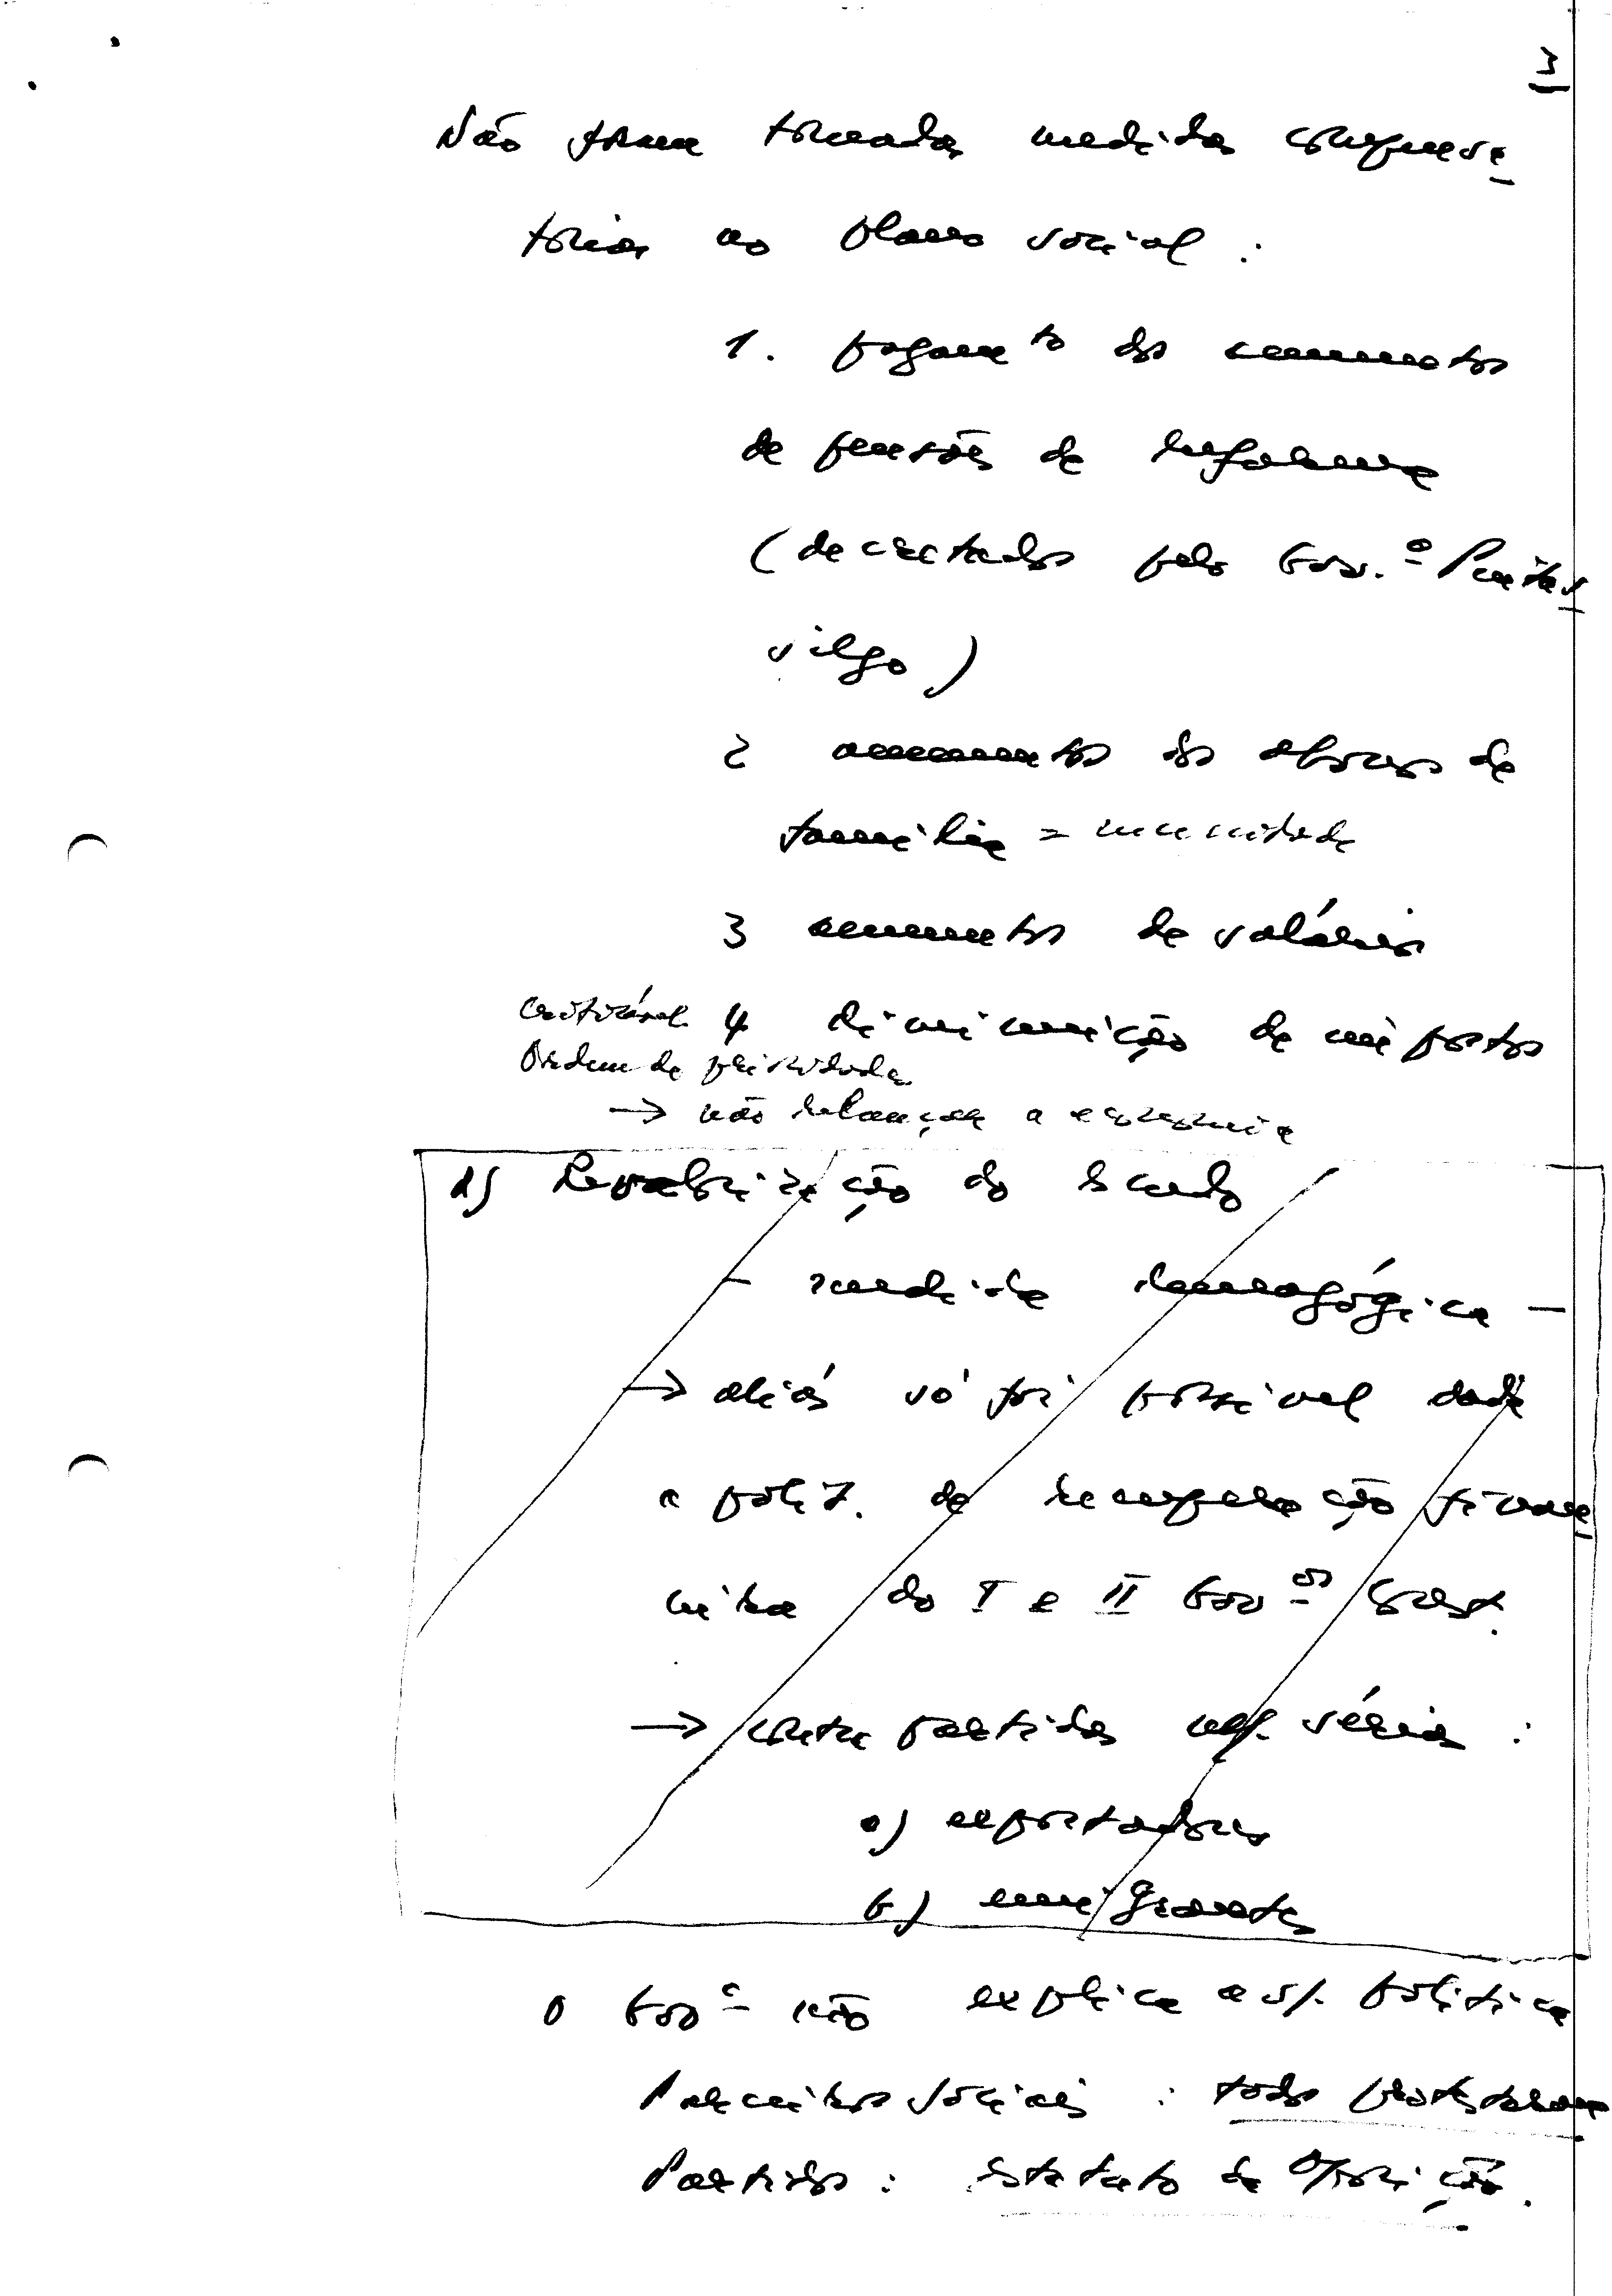 3
Não foram tomadas medidas compensa
tórias no plano social :
1. pagam.to dos aumentos
de pensões de reforma
(decretados pelo Gov.º Pintas
silgo)
2 aumentos dos abonos de
família =
3 aumentos de salários
criticável 4 diminuição de impostos
Ordem de prioridades
→ não relançar a economia
d) Revalorização do Escudo
- medida demagógica -
→ aliás só foi possível dada
a polít. de recuperação finan
ceira do I e II Gov.os Const.
→ contra partidas mt. sérias :
a) exportadores
b) emigrantes
O Gov.º não explica a s/. política
Parceiros Sociais : todos protestaram
Partidos : Estatuto da Oposição.